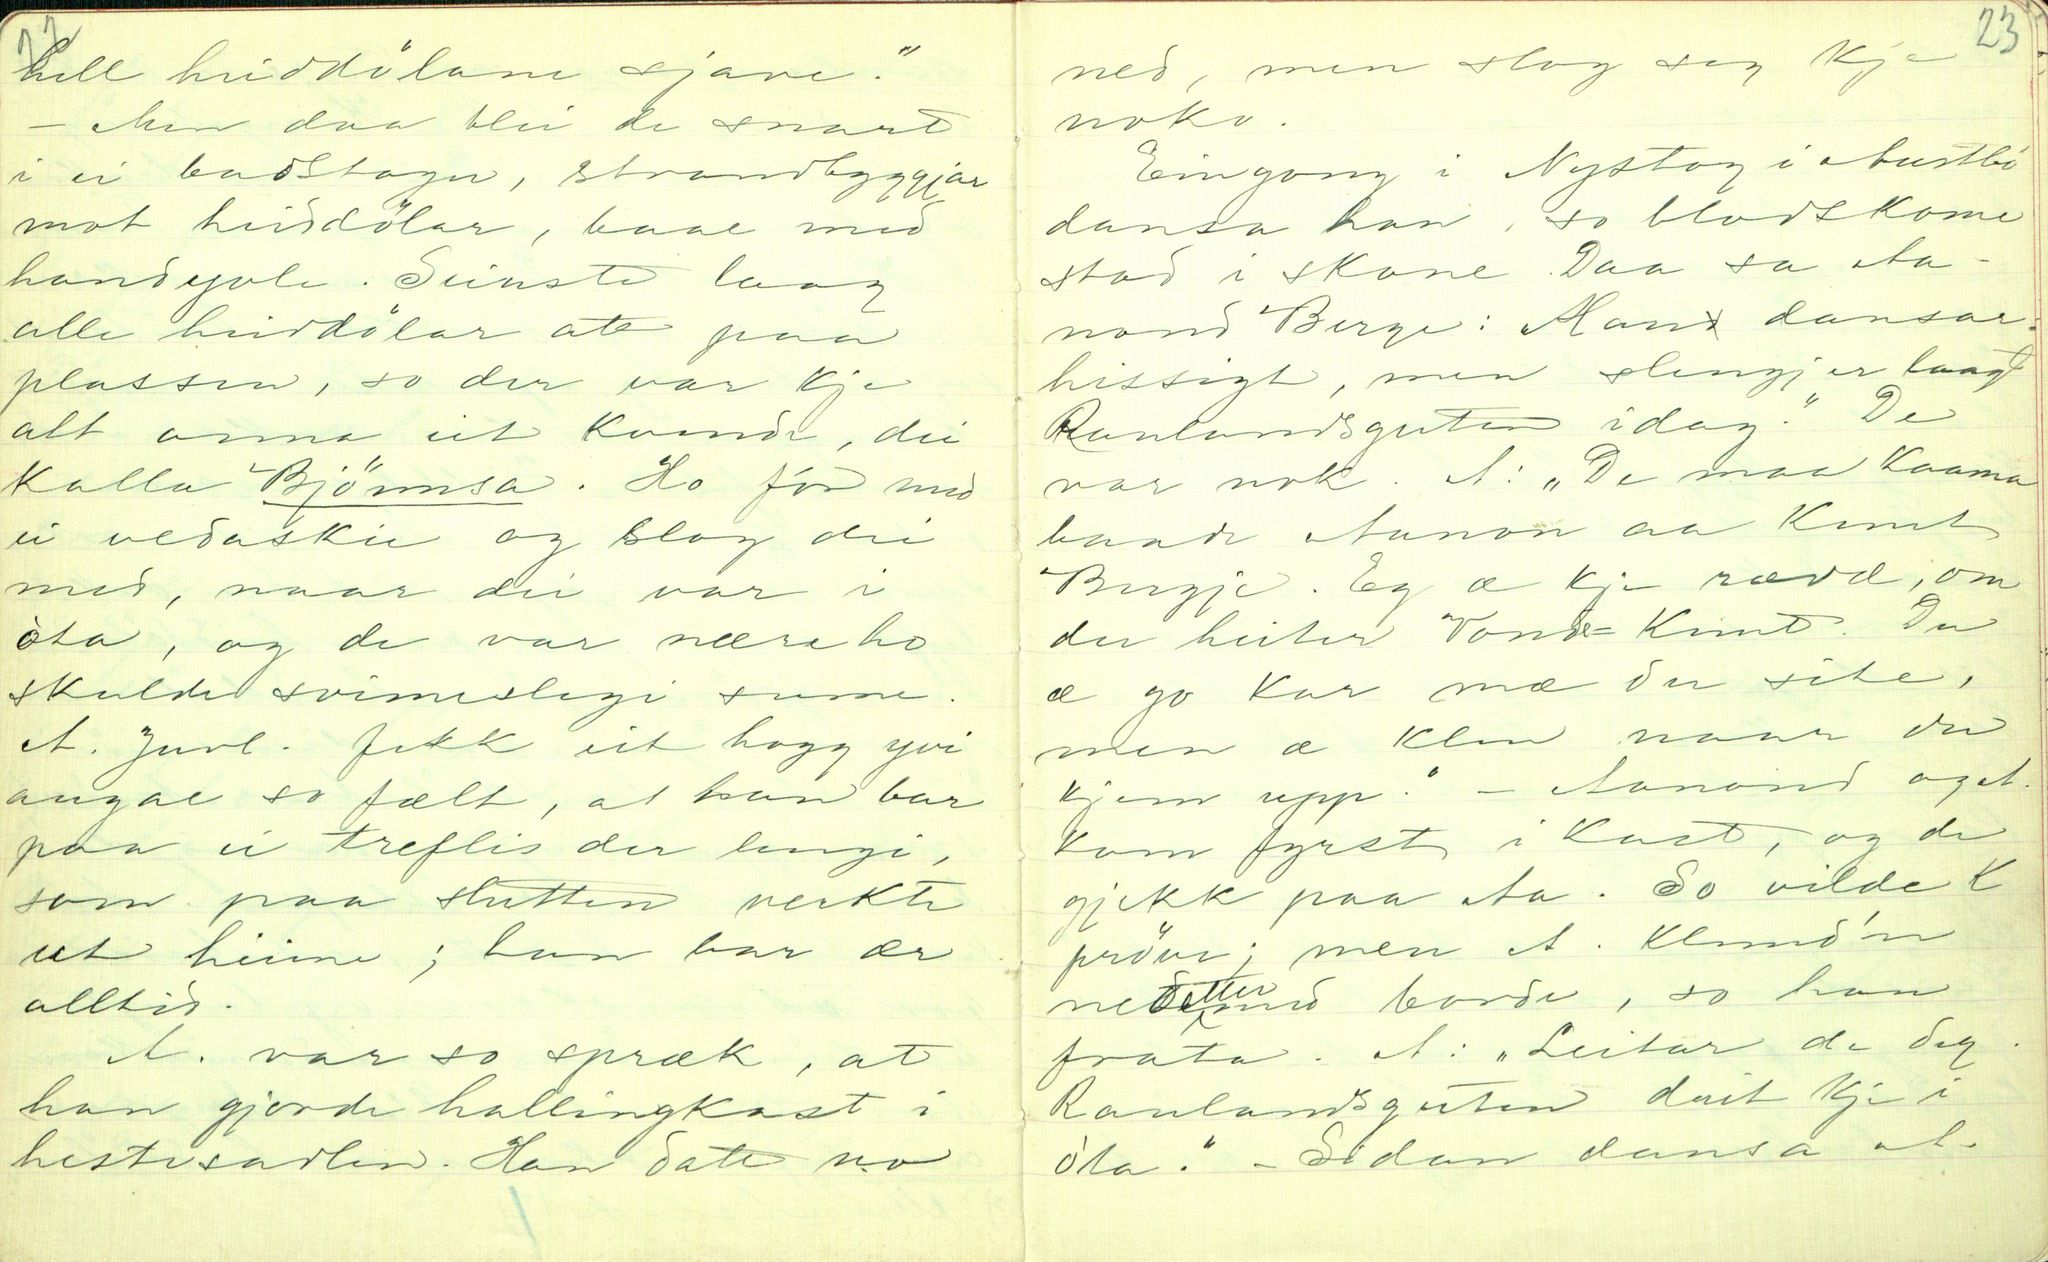 22
hell heiddölane sjave."
- Men daa blei de snart
i ei badstogu, strandbyggjar
mot heiddölar, baae med
handyvle. Seinste laag
alle heiddölar att paa
plassen, so der var kje
alt anna eit kvende, dei
kalla Bjönnsa. Ho fór med
ei vedaskie og slog dei
med, naar dei var i
óta, og de var nære ho
skulde svimeslegi sume.
A. Juvl. fekk eit hogg yvi
augae so fælt, at han bar
paa ei treflis der lengi,
som paa slutten verkte
ut heime; han bar ær
alltid.
A. var so spræk, at
han gjorde hallingkast i
hestesadlen. Han datt no
23
ned, men slog seg kje
noko.
Eingong i Nystog i Austbö
dansa han, so blodskome
stod i skone. Daa sa Aa-
nond Berge: Man dansar
hissigt, men slengjer laagt
Raulandsguten idag." De
var nok. A: "De maa koma
baade Aanon aa Knut
Bergje. Eg æ kje rædd, om
du heiter Vond-Knut. Du
æ go kar mæ du site,
men æ klen naar du
kjem upp." - Aanond og A.
kom fyrst i kast, og de
gjekk paa Aa. So vilde K
pröve; men A. klemd'n
ned etter med borde, so han
frata. A: "Leitar de deg.
Raulandsguten deit kje i
óta." - Sidan dansa A.